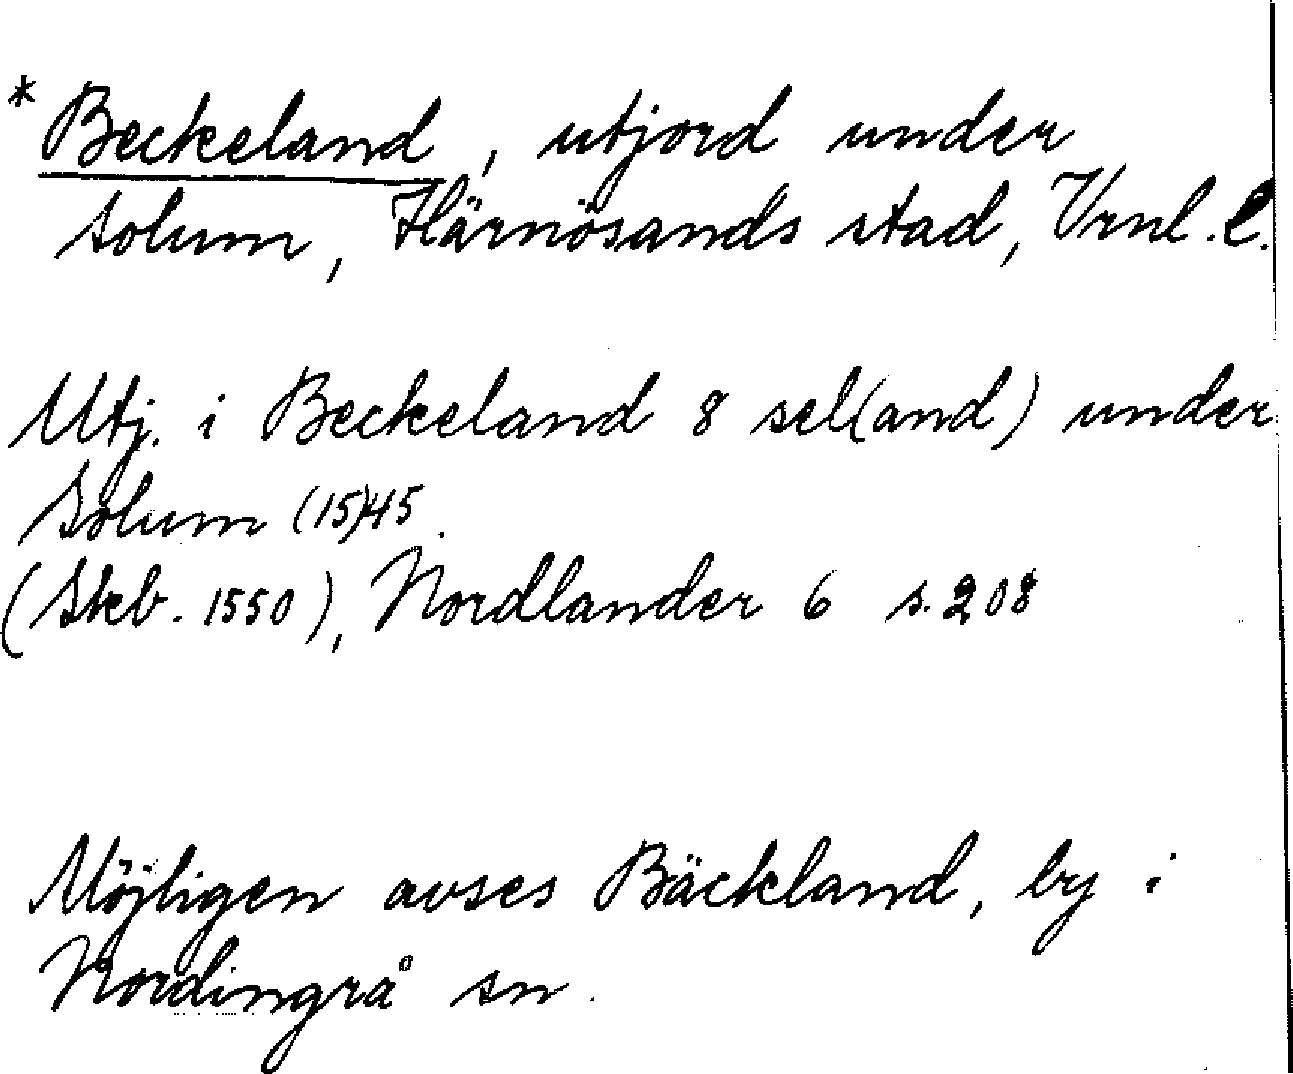 * Beckeland, utjord under
Solum, Härnösands stad, Vrnl. l.
Utj. i Beckeland 8 sel(and) under
Solum (15)45.
(Skb. 1550), Nordlander 6 s. 208
Möjligen avses Bäckland, by i
Nordingrå sn.